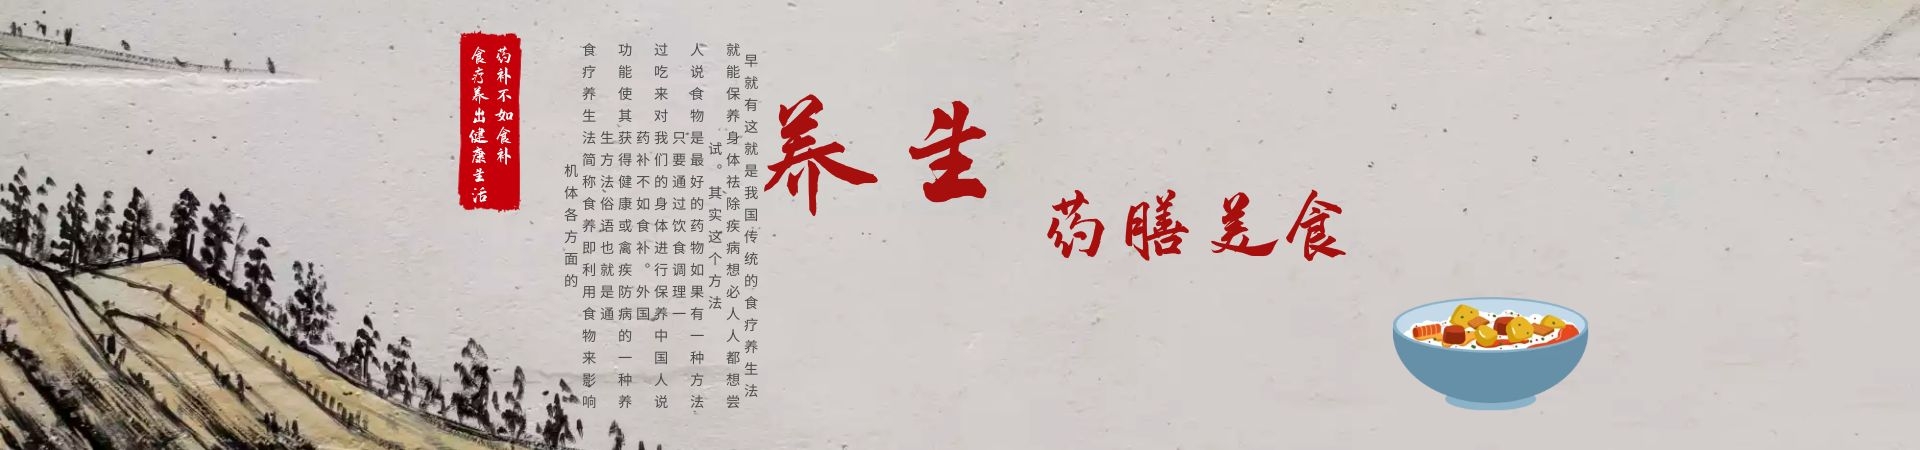 药补不如食补
食疗养出健康生活
食疗养生法简称食养即利用食物来影响
机体各方面的
功能使其获得健康或禽疾防病的一种养
生方法俗语也就是通
过吃来对我们的身体进行保养中国人说
药补不如食补。外国
人说食物是最好的药物如果有一种方法
只要通过饮食调理一
就能保养身体祛除疾病想必人人都想尝
试。其实这个方法
早就有这就是我国传统的食疗养生法
养生
药膳美食